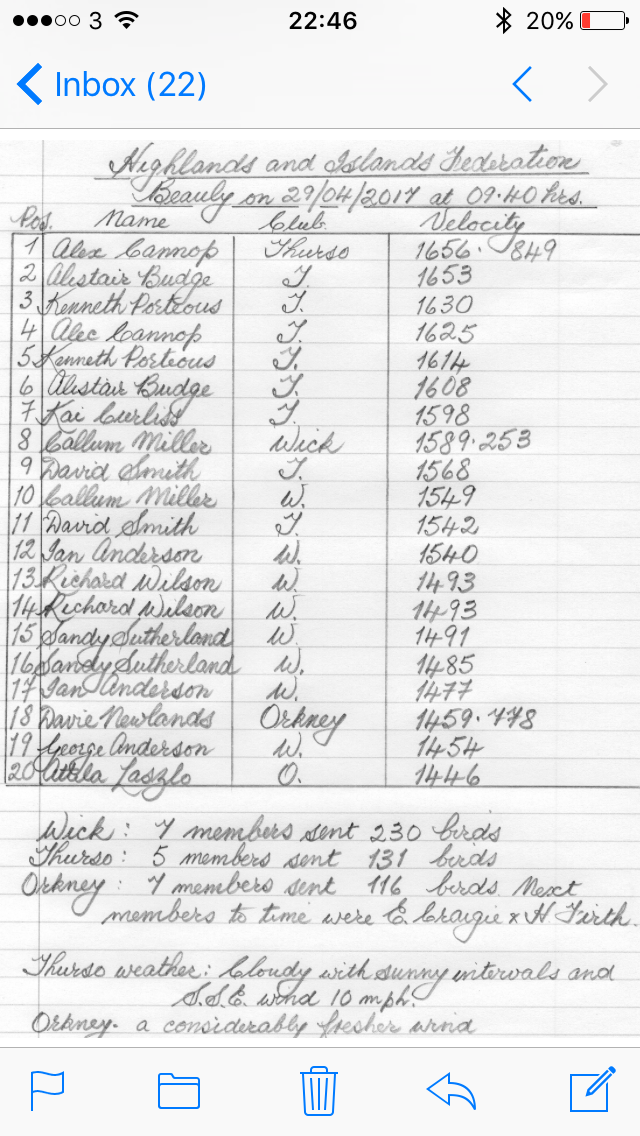 3 22:46 20%
Inbox (22)
Highlands and Islands Federation
Beauly on 29/04/2017 at 09.40 hrs.
Pos. Name Club Velocity
1 Alex Cannop Thurso 1656.849
2 Alistair Budge T. 1653
3 Kenneth Porteous T. 1630
4 Alec Cannop T. 1625
5 Kenneth Porteous T. 1614
6 Alistair Budge T. 1608
7 Kai Curliss T. 1598
8 Callum Miller Wick 1589.253
9 David Smith T. 1568
10 Callum Miller W. 1549
11 David Smith T. 1542
12 Ian Anderson W. 1540
13 Richard Wilson W. 1493
14 Richard Wilson W. 1493
15 Sandy Sutherland W. 1491
16 Sandy Sutherland W. 1485
17 Ian Anderson W. 1477
18 Davie Newlands Orkney 1459.778
19 George Anderson W. 1454
20 Attila Laszlo O. 1446
Wick: 7 members sent 230 birds
Thurso: 5 members sent 131 birds
Orkney: 7 members sent 116 birds. Next
members to time were E. Craigie x H Firth.
Thurso weather: Cloudy with sunny intervals and
S.S.E. wind 10 mph.
Orkney- a considerably fresher wind